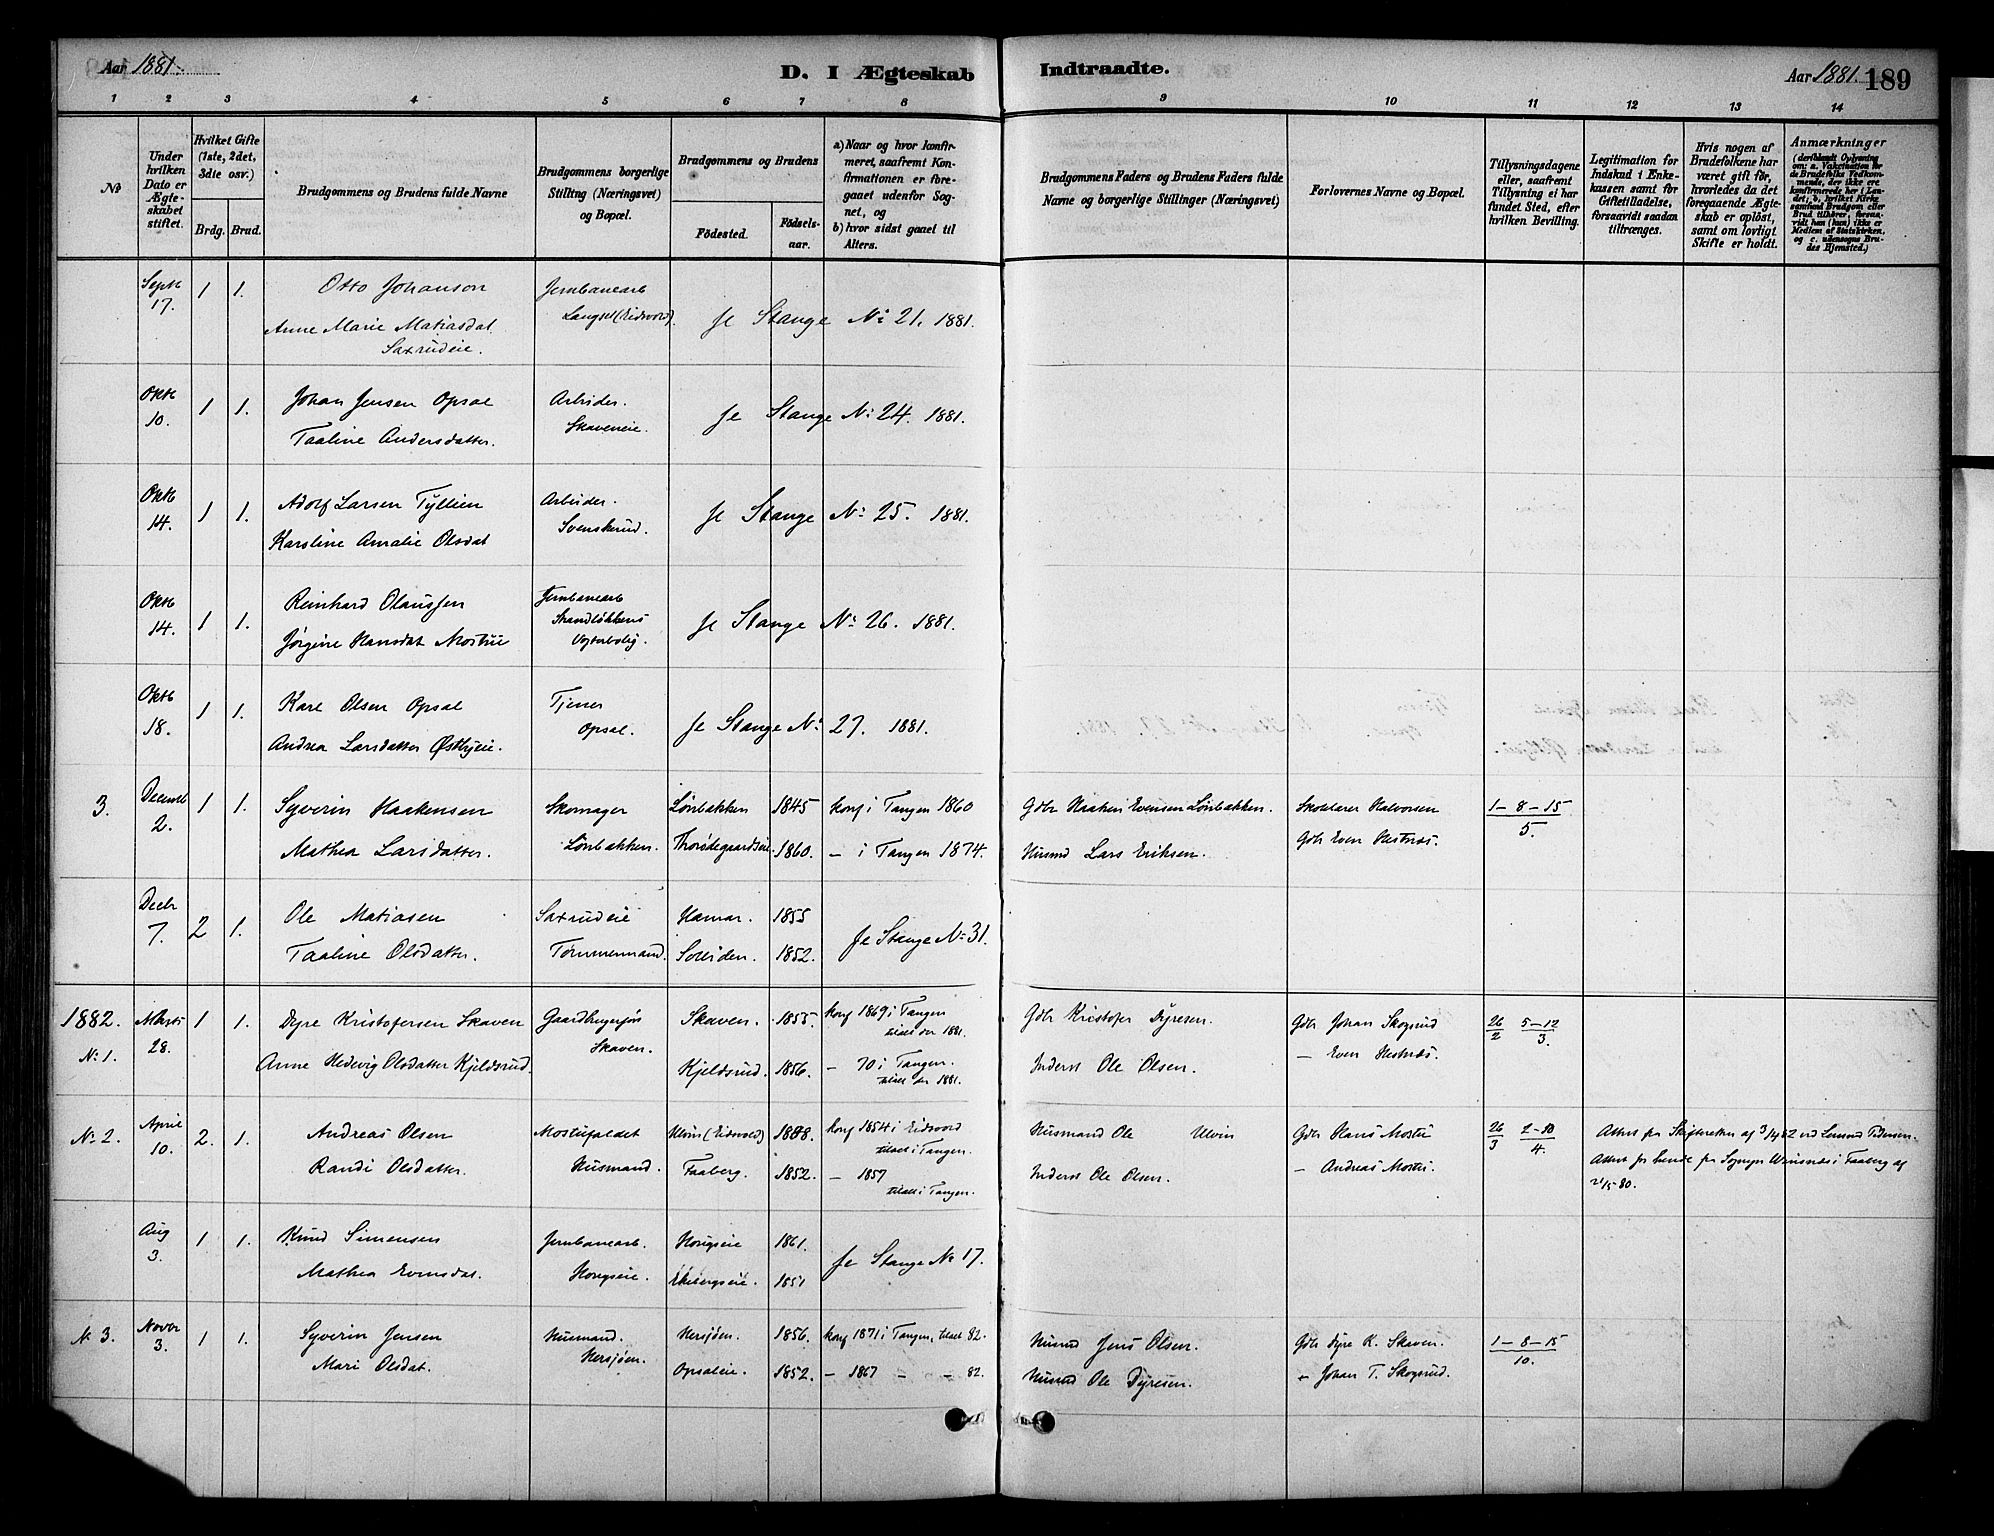 Aar 1881.
D. I Ægteskab Indtraadte.
Aar 1881. 189
1 2 3 4 5 6 7 8 9 10 11 12 13 14
No
Under hvilken Dato er Ægteskabet stiftet.
Hvilket Gifte (1ste, 2det, 3die osv.)
Brdg. Brud.
Brudgommens og Brudens fulde Navne
Brudgommens borgerlige Stilling (Næringsvei) og Bopæl.
Brudgommens og Brudens
Födested. Födselsaar.
a) Naar og hvor konfirmeret, saafremt Konfirmationen er foregaaet udenfor Sognet, og
b) hvor sidst gaaet til Alters.
Brudgommens Faders og Brudens Faders fulde Navne og borgerlige Stillinger (Næringsvei)
Forlovernes Navne og Bopæl.
Tillysningsdagene eller, saafremt Tillysning ei har fundet Sted, efter hvilken Bevilling.
Legitimation for Indskud i Enkekassen samt for Giftetilladelse, forsaavidt saadan tiltrænges.
Hvis nogen af Brudefolkene har været gift før, hvorledes da det foregaaende Ægteskab er opløst, samt om lovligt Skifte er holdt.
Anmærkninger
Septb 17. 1 1. Otto Johanson Jernbanearb
Anne Marie Matiasdat. Langset (Eidsvold). fe Stange No 21. 1881.
Saxrudeie.
Oktb 10. 1 1. Johan Jensen Opsal Arbeider. fe Stange No 24. 1881.
Taaline Andersdatter. Skaveneie.
Oktb 14. 1 1. Adolf Larsen Tyllien Arbeider. fe Stange No 25. 1881.
Karoline Amalie Olsdat Svenskerud.
Oktb 14. 1 1. Reinhard Olaussen Jernbanearb
Jørgine Hansdat Mostue Strandløkkens Vogterbolig. fe Stange No 26. 1881.
Oktb 18. 1 1. Karl Olsen Opsal Tjener fe Stange No 27. 1881.
Andrea Larsdatter Østbyeie. Opsal.
3. Decemb 2. 1 1. Syverin Haakensen Skomager Lønbakken 1845 konf i Tangen 1860 Gdbr Haaken Evensen Lønbakken. Skolelærer Halvorsen 1-8-15
Mathea Larsdatter. Lønbakken. Thorsdegaardseie 1860. - i Tangen 1874. Husmd Lars Eriksen. Gdbr Even Hestnæs. 5.
Decbr 7. 2 1. Ole Matiasen Saxrudeie Hamar. 1855 fe Stange No 31.
Taaline Olsdatter. Tømmermand. Soleiden. 1852.
1882. No 1. Marts 28. 1 1. Dyre Kristofersen Skaven Gaardbrugersøn Skaven. 1855. konf 1869 i Tangen Gdbr Kristofer Dyresen. Gdbr Johan Skogrud 26/2 5-12/3.
Skaven. 1881.
Anne Hedevig Olsdatter Kjeldsrud. Kjeldsrud. 1856. - 70 i Tangen. Inderst Ole Olsen. - Even Hestnæs.
1881.
No 2. April 10. 2. 1. Andreas Olsen Mostufaldet Ulvin (Eidsvold) konf 1854 i Eidsvold Husmand Ole Ulvin Gdbr Hans Mostu 26/3 4. Attest fra Skifteretten af
i Tangen.
Randi Olsdatter. Husmand. Faaberg. 1852. - 1857 Inderst Ole Olsen. - Andreas Mostu. Attest for hende fra i Faaberg af
i Tangen. 80.
Aug 3. 1 1. Knud Simensen Jernbanearb. Horgseie 1861. fe Stange No 17.
Mathea Evensdat. Horgseie. Ekebergseie. 1851
No 3. Novbr 3. 1 1. Syverin Jensen Husmand. Hersjøen. 1856. konf 1871 i Tangen, 82. Husmd Jens Olsen. Gdbr Dyre K. Skaven. 1-8-15
Mari Olsdat. Hersjøen. Opsaleie. 1852. - 1867 - - 82. Husmd Ole Dyresen. - Johan T. Skogrud. 10.